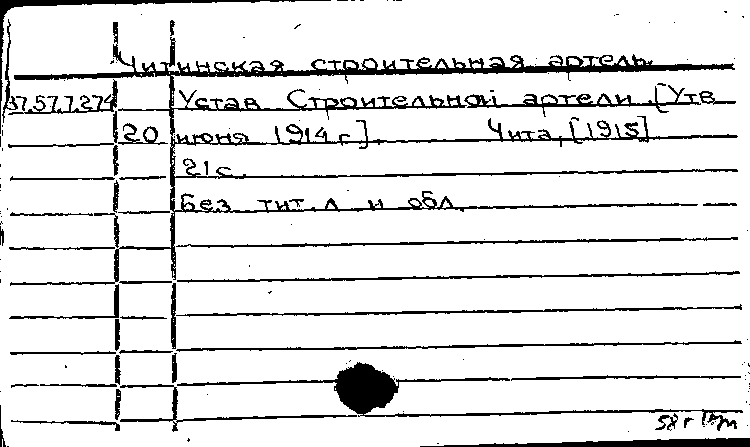 Читинская строительная артель.
37.57.7.274 Устав Строительной артели. [Утв
20 июня 1914 г.]. Чита, [1915]
21 с.
Без тит. л и обл.
58 г